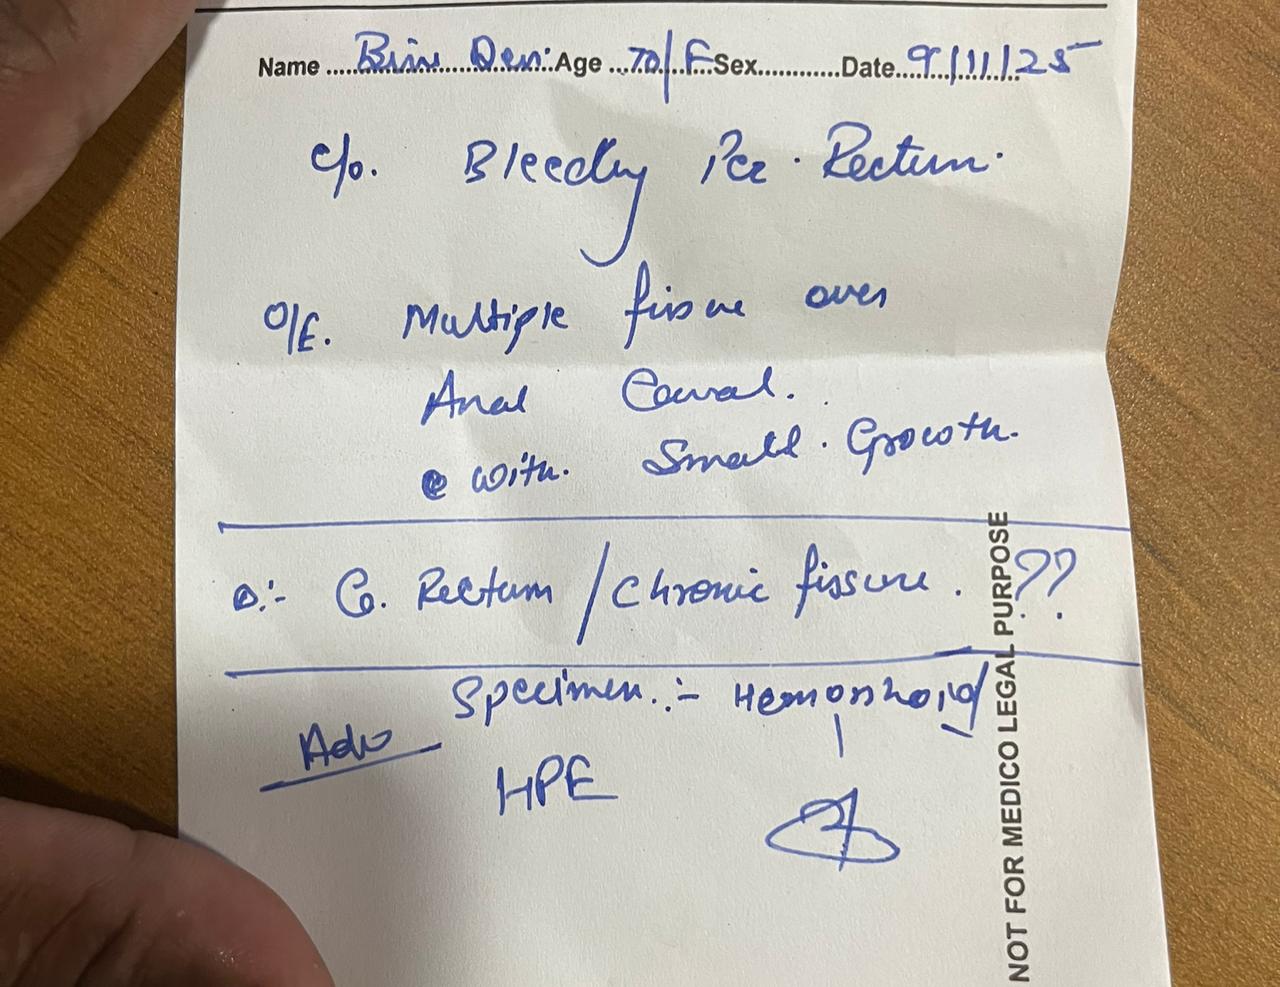 Name ........ Devi Age ..70/F..Sex............Date..9/11/25
c/o. Bleeding Per. Rectum.
O/E. Multiple fissure over
Anal Canal.
with. Small. Growth.
D:- Ca. Rectum / Chronic fissure. ??
Specimen.:- Hemorrhoid
Adv
HPE
NOT FOR MEDICO LEGAL PURPOSE